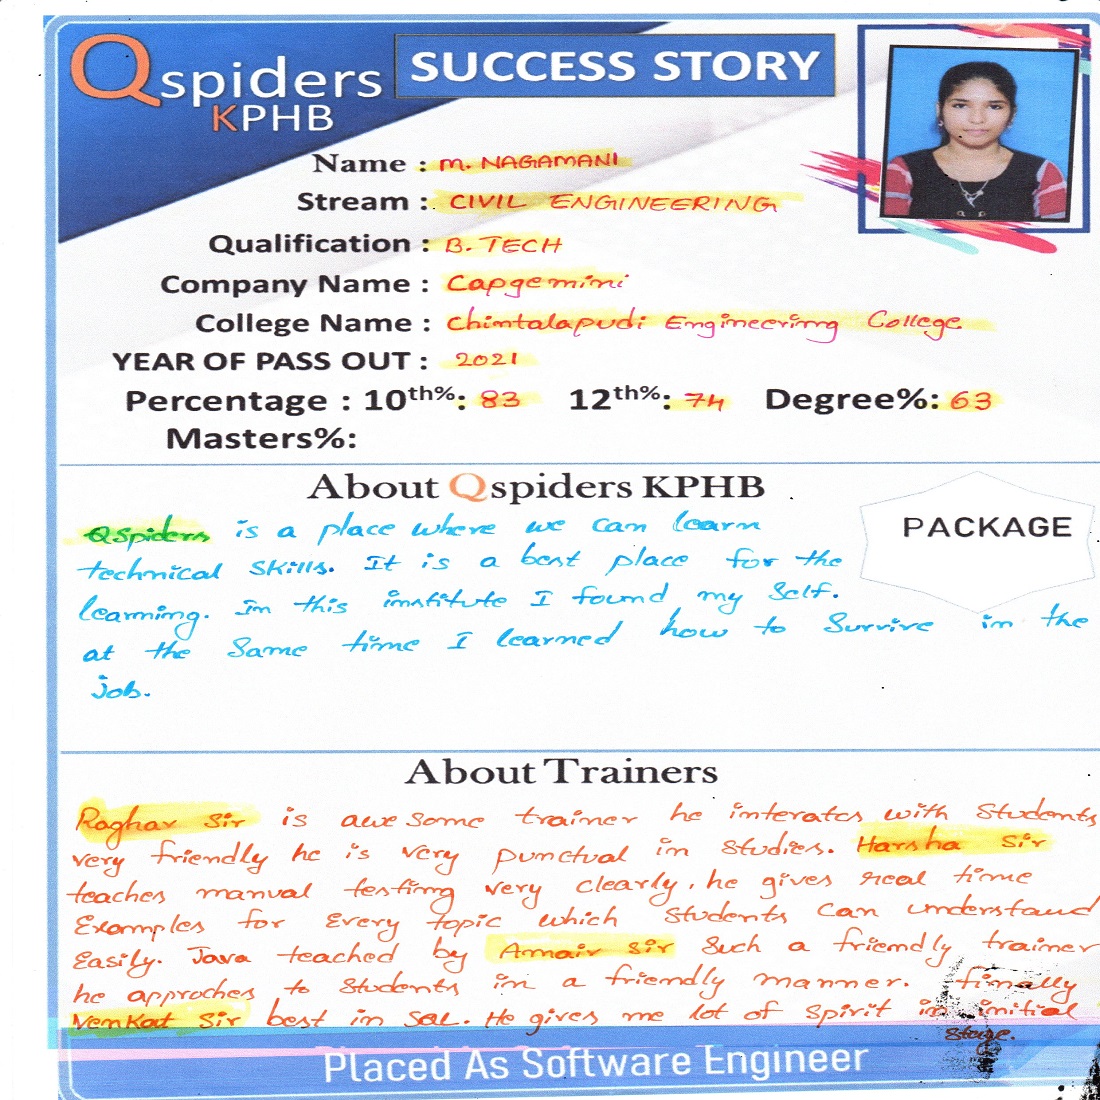 Qspiders
KPHB
SUCCESS STORY
Name : M. NAGAMANI
Stream : CIVIL ENGINEERING
Qualification : B.TECH
Company Name : Capgemini
College Name : Chintalapudi Engineering College
YEAR OF PASS OUT : 2021
Percentage : 10th%: 83 12th%: 74 Degree%: 63
Masters%:
About Qspiders KPHB
PACKAGE
QSpiders is a place where we can learn
technical skills. It is a best place for the
learning. In this institute I found my self.
at the same time I learned how to survive in the
job.
About Trainers
Raghav Sir is awesome trainer he interates with students
very friendly he is very punctual in studies. Harsha Sir
teaches manual testing very clearly, he gives real time
Examples for Every topic which students can understand
Easily. Java teached by sir such a friendly trainer
he approches to students in a friendly manner. finally
Venkat Sir best in SQL. He gives me lot of spirit in initial
stage.
Placed As Software Engineer